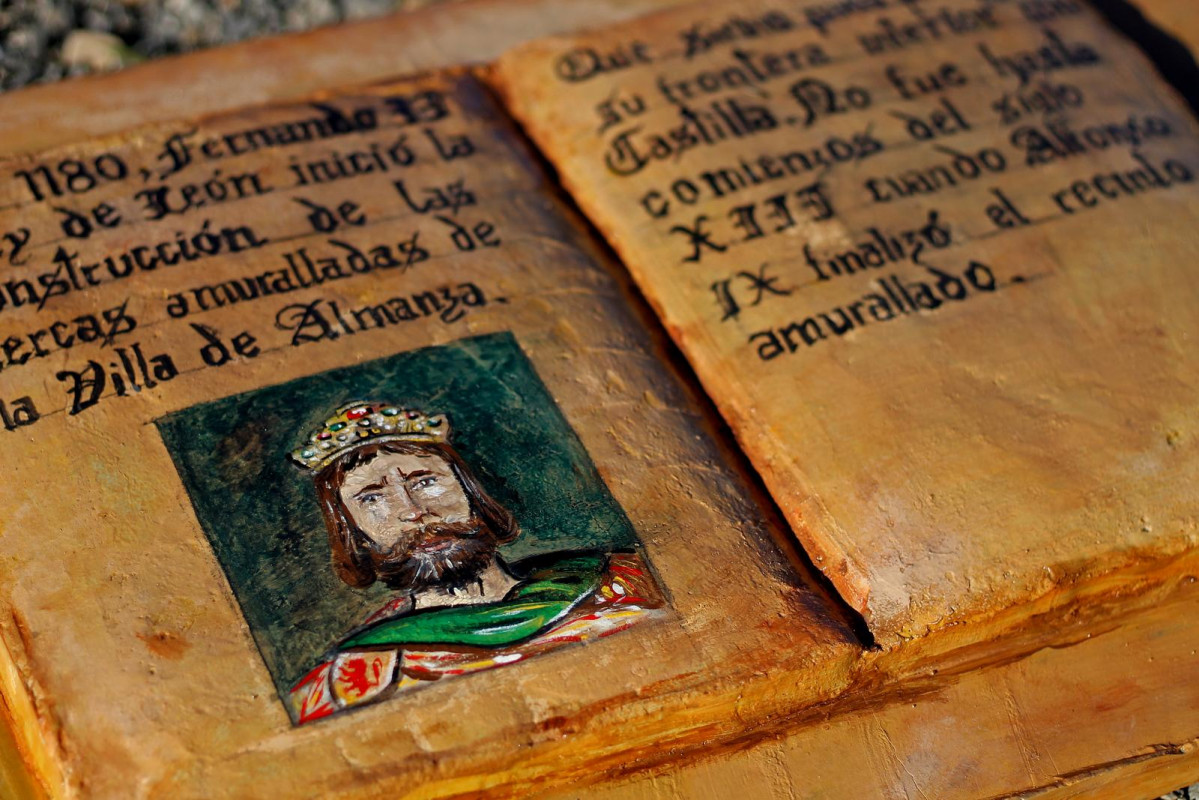 1180, Fernando II
y de León inició la
onstrucción de las
ercas amuralladas de
la Villa de Almanza.
Que
su frontera inferior
Castilla. No fue hasta
comienzos del siglo
XIII cuando Alfonso
IX finalizó el recinto
amurallado.